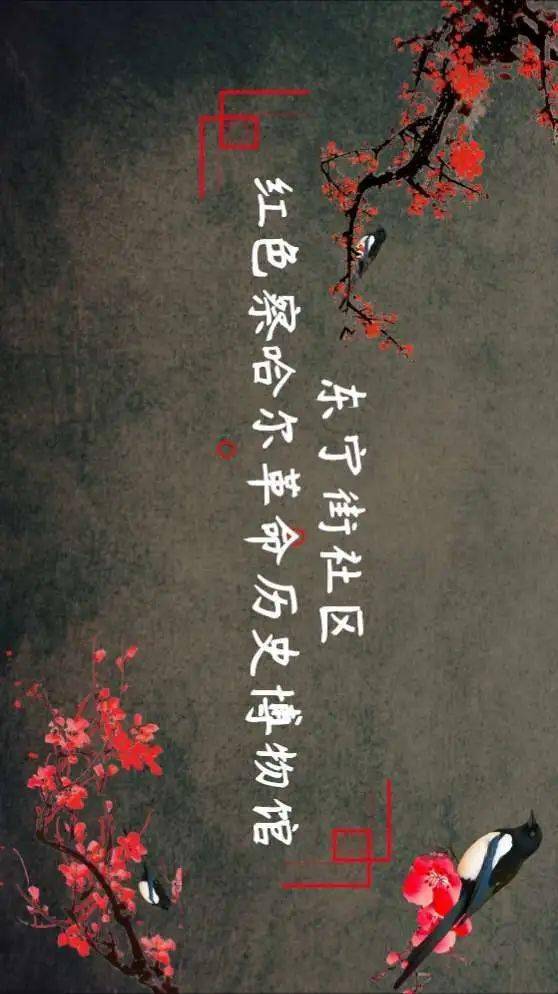 东宁街社区
红色察哈尔革命历史博物馆